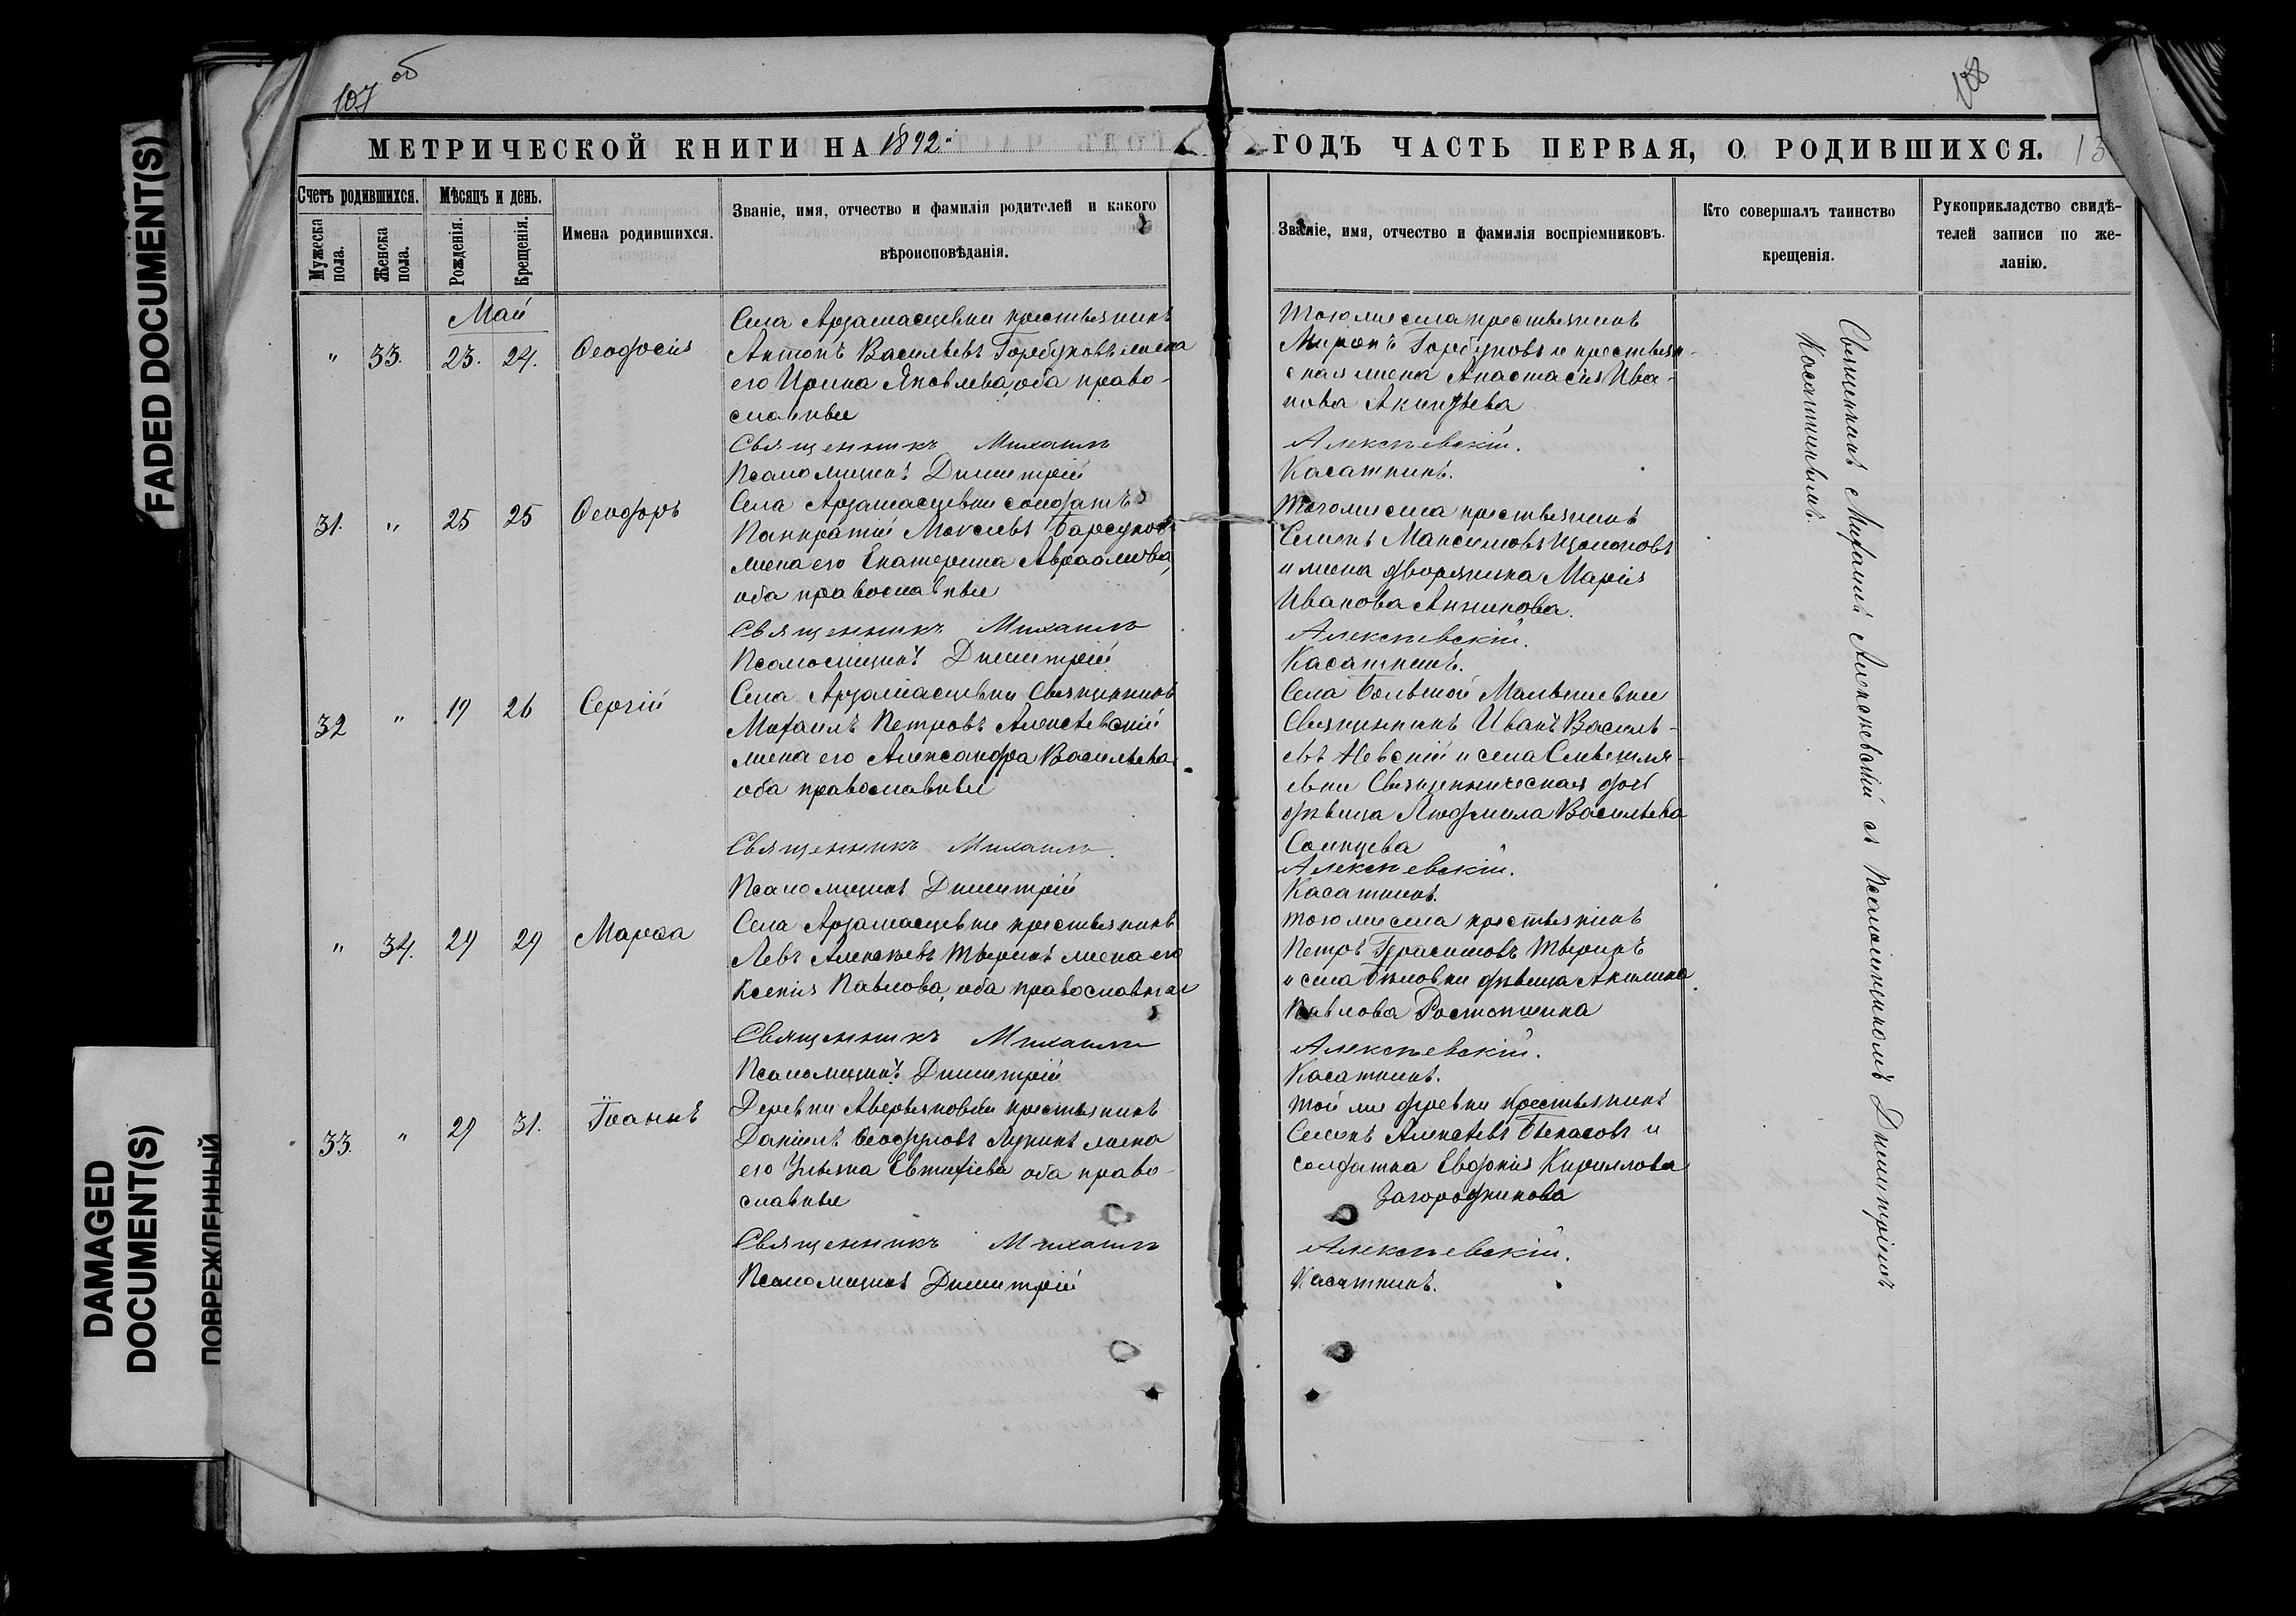 107 об
108
МЕТРИЧЕСКОЙ КНИГИ НА 1892
ГОДЪ ЧАСТЬ ПЕРВАЯ, О РОДИВШИХСЯ. 13
Счетъ родившихся.
Мужеска пола.
Женска пола.
Мѣсяцъ и день.
Рожденія.
Крещенія.
Имена родившихся.
Званіе, имя, отчество и фамилія родителей и какого
вѣроисповѣданія.
Званіе, имя, отчество и фамилія воспріемниковъ.
Кто совершалъ таинство
крещенія.
Рукоприкладство свидѣ-
телей записи по же-
ланію.
Май
" 33. 23. 24. Ѳеодосія
Села Арзамасцевки крестьянинъ
Антонъ Васильевъ Горбуновъ жена
его Ирина Яковлева, оба право-
славные
Священникъ Михаилъ
Псаломщикъ Димитрій
Тогоже села крестьянинъ
Миронъ Горбуновъ и крестьян-
ская жена Анастасія Ива-
нова Акинфѣева
Алексѣевскій.
Касаткинъ.
31. " 25 25 Ѳеодоръ
Села Арзамасцевки солдатъ
Панкратій Моисеевъ Барсуковъ
жена его Екатерина Авраамова,
оба православные
Священникъ Михаилъ
Псаломщикъ Димитрій
Тогоже села крестьянинъ
Семенъ Максимовъ
и жена дворянина Марія
Иванова Анненкова.
Алексѣевскій.
Касаткинъ.
32 " 19 26 Сергій
Села Арзамасцевки Священникъ
Михаилъ Петровъ Алексѣевскій
жена его Александра Васильева
оба православные
Священникъ Михаилъ.
Псаломщикъ Димитрій
Села Большой
Священникъ Иванъ Василь-
евъ Невскій и села
евки Священническая дочь
дѣвица Людмила Васильева
Солнцева
Алексѣевскій.
Касаткинъ.
" 34. 29 29 Марѳа
Села Арзамасцевки крестьянинъ
Левъ Алексѣевъ Тюринъ жена его
Ксенія Павлова, оба православные
Священникъ Михаилъ
Псаломщикъ Димитрій
Тогоже села крестьянинъ
Петръ Герасимовъ Тюринъ
и села дѣвица Акилина
Павлова Ростопшина
Алексѣевскій.
Касаткинъ.
33. " 29 31. Іоаннъ
Деревни Аверьяновки крестьянинъ
Даніилъ Ѳеодоровъ Лукинъ жена
его Ульяна Евтихіева оба право-
славные
Священникъ Михаилъ
Псаломщикъ Димитрій
Той же деревни крестьянинъ
Семенъ Алексѣевъ Бекасовъ и
солдатка Евдокія Кириллова
Загородникова
Алексѣевскій.
Касаткинъ.
Священникъ Михаилъ Алексѣевскій съ Псаломщикомъ Димитріемъ
Касаткинымъ.
FADED DOCUMENT(S)
DAMAGED
DOCUMENT(S)
ПОВРЕЖДЕННЫЙ